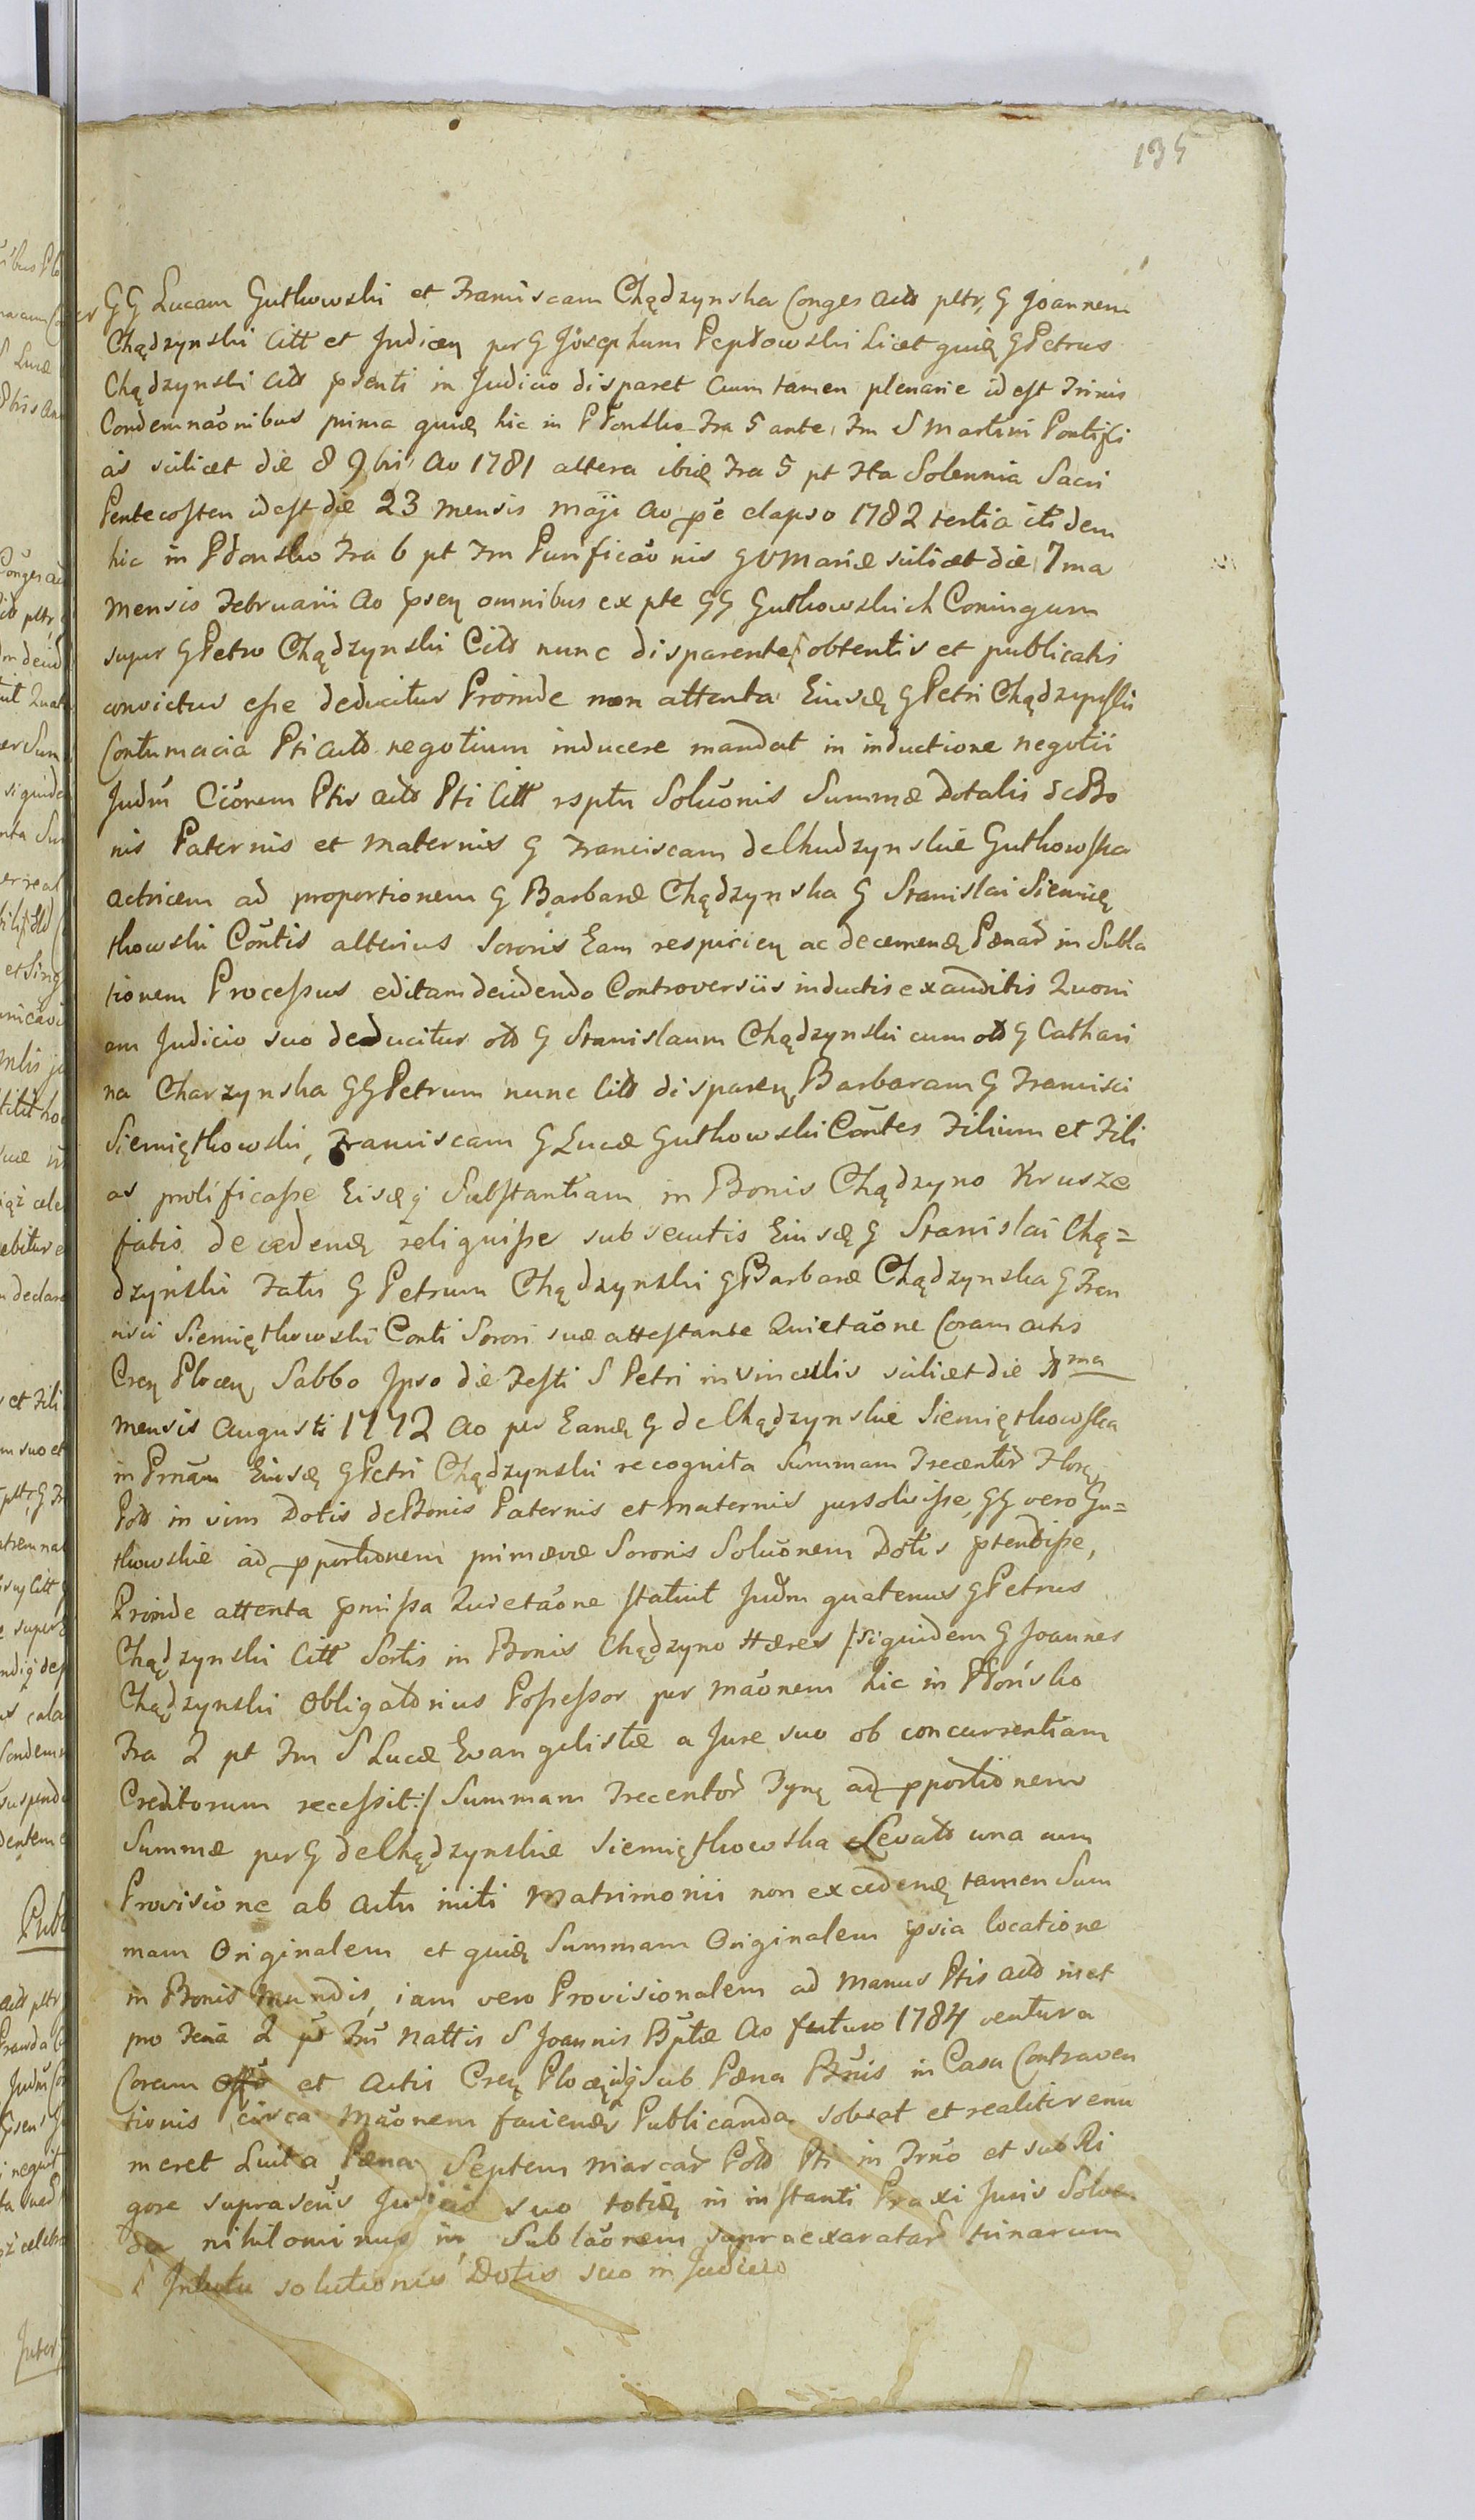 135
GG Lucam Gutkowski et Franciscam Chądzynska Conges acto pltr, G Joannem
Chądzynski Citt et Judicem per G Josephum Peptowski Licet quidem G Petrus
Chądzynski Cito psenti in Judicio disparet Cum tamen plenarie id est Trinis
Condemnaonibus prima quidem hic in Płonsko Fra 5 ante Fm S Martini Pontifi
cis scilicet die 8 9bris Ao 1781 altera ibidem Fra 5 pt Fta Solennia Sacri
Pentecosten id est die 23 mensis maji ao pe elapso 1782 tertia itidem
hic in Płonsko Fra 6 pt Fm Purificaonis G V Mariæ scilicet die 7ma
mensis Februarii Ao psen omnibus ex pte GG Gutkowskich Coniugum
super G Petro Chądzynski Cito nunc disparente obtentis et publicatis
convictus esse deducitur Proinde non attenta Eiusdem G Petri Chądzynski
Contumacia Pti acto negotium inducere mandat in inductione negotii
Judm Cionem Ptis acto Pti Citt rsptu Soluonis Summæ Dotalis de Bo
nis Paternis et maternis G Franciscam de Chudzynskie Gutkowska
actricem ad proportionem G Barbaræ Chądzynska G Stanislai Siemią
tkowski Contis alterius Sororis Eam respicien ac decernendæ Pænæ in Subla
tionem Processus editam decidendo Controversiis inductis exauditis Quoni
am Judicio suo deducitur olo G Stanislaum Chądzynski cum olo G Cathari
na Charzynska GG Petrum nunc Cito disparen Barbaram G Francisci
Siemiętkowski, Franciscam G Lucæ Gutkowski Contes Filium et Fili
as prolificasse Eisdeq Substantiam in Bonis Chądzyno Krusze
fatis decedendæ reliquisse subsecutis Eiusdem G Stanislai Chą=
dzynski Fatis G Petrum Chądzynski G Barbaræ Chądzynska G Fran
cisci Siemiętkowski Conti Sorori suæ attestante Quietaone Coram actis
Cren Plocen Sabbo Ipso die Festi S Petri in vinculis scilicet die ma
mensis Augusti 1772 Ao per Eandem G de Chądzynskie Siemiętkowska
in Prnam Eiusdem G Petri Chądzynski recognita Summam Trecentor Floren
Polo in vim Dotis de Bonis Paternis et maternis persolvisse, GG vero Gu=
tkowskie ad pportionem primævæ Sororis Soluonem Dotis ptendisse,
Proinde attenta pmissa Quietaone statuit Judm quatenus G Petrus
Chądzynski Citt Sortis in Bonis Chądzyno Hæres /:siquidem G Joannes
Chądzynski Obligatorius Possessor per maonem hic in Płońsko
Fra 2 pt Fm S Lucæ Evangelistæ a Jure suo ob concurrentiam
Creditorum recessit:/ Summam Trecentor Fyn ad pportionem
Summæ per G de Chądzynskie Siemiętkowska Levato una cum
Provisione ab actu initi Matrimonii non excedendæ tamen Sum
mam Originalem et quidem Summam Originalem pvia locatione
in Bonis Mundis, iam vero Provisionalem ad Manus Ptis acto inet
pro Feria 2 pt Fm Nattis S Joannis Bptæ Ao futuro 1784 ventura
Coram et Actis Cren Plocen Sub Pæna Bnis in Casu Contraven
tionis circa Maonem faciendæ Publicanda solvat et realiter enu
meret Luita Pæna Septem marcar Polo Pti in Trno et sub Ri
gore suprascris Judicio suo totidem in instanti Praxi Juris Solven
da nihilominus in Sublaonem supra exaratar trinarum
Intuitu solutionis Dotis suo in Judicio